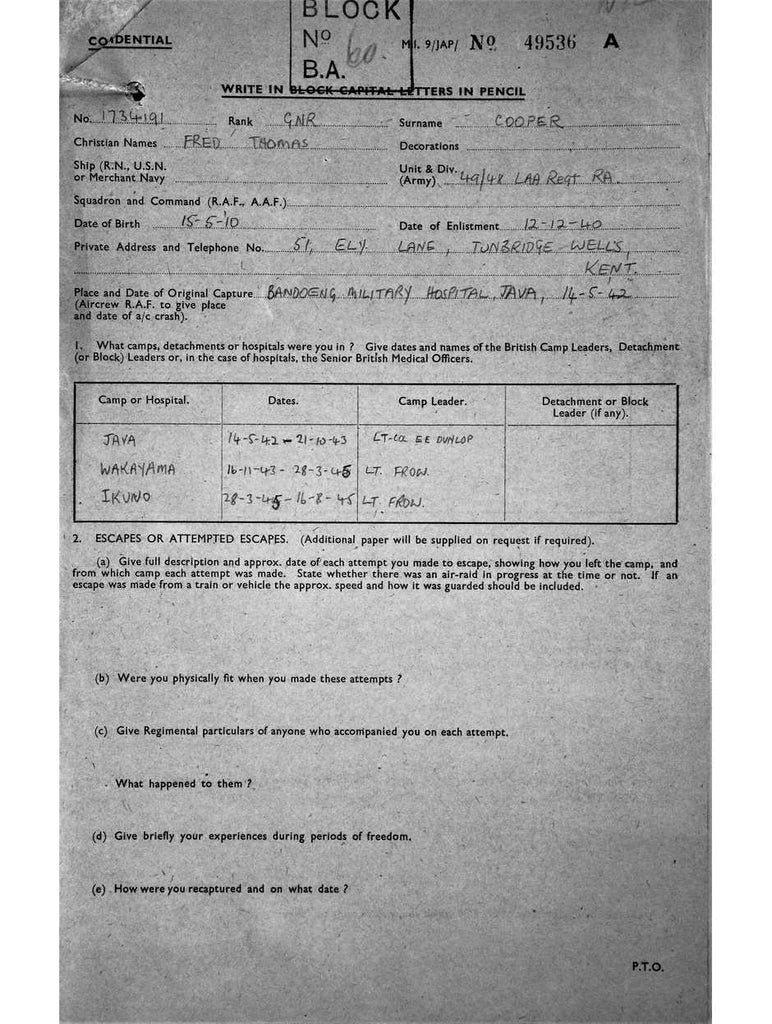 BLOCK
No 60.
B.A.
CONFIDENTIAL
M.I. 9/JAP/ No 49536 A
WRITE IN BLOCK CAPITAL LETTERS IN PENCIL
No. 1734191 Rank GNR Surname COOPER
Christian Names FRED THOMAS Decorations
Ship (R.N., U.S.N. or Merchant Navy
Unit & Div. (Army) 49/48 LAA Regt RA.
Squadron and Command (R.A.F., A.A.F.)
Date of Birth 15-5-10 Date of Enlistment 12-12-40
Private Address and Telephone No. 51, ELY LANE, TUNBRIDGE WELLS,
KENT.
Place and Date of Original Capture BANDOENG MILITARY HOSPITAL, JAVA, 14-5-42
(Aircrew R.A.F. to give place
and date of a/c crash).
1. What camps, detachments or hospitals were you in ? Give dates and names of the British Camp Leaders, Detachment
(or Block) Leaders or, in the case of hospitals, the Senior British Medical Officers.
Camp or Hospital. Dates. Camp Leader. Detachment or Block Leader (if any).
JAVA 14-5-42 - 21-10-43 LT-COL E E DUNLOP
WAKAYAMA 16-11-43 - 28-3-45 LT. FROW.
IKUNO 28-3-45 - 16-8-45 LT. FROW.
2. ESCAPES OR ATTEMPTED ESCAPES. (Additional paper will be supplied on request if required).
(a) Give full description and approx. date of each attempt you made to escape, showing how you left the camp, and
from which camp each attempt was made. State whether there was an air-raid in progress at the time or not. If an
escape was made from a train or vehicle the approx. speed and how it was guarded should be included.
(b) Were you physically fit when you made these attempts ?
(c) Give Regimental particulars of anyone who accompanied you on each attempt.
What happened to them ?
(d) Give briefly your experiences during periods of freedom.
(e) How were you recaptured and on what date ?
P.T.O.